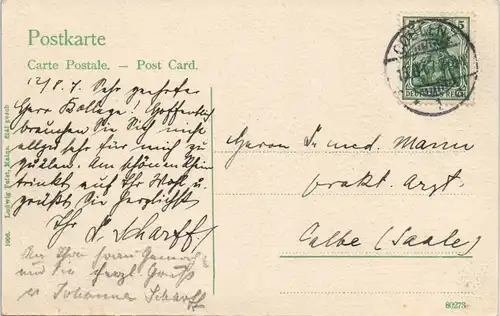 Postkarte
Carte Postale. — Post Card.
12/8.7. Sehr geehrter
Herr Kollege! Hoffentlich
brauchen Sie Sich nicht
allzu sehr für mich zu
quälen. Am schönen Rhein
trinkt auf Ihr Wohl u.
grüßt Sie herzlichst
Ihr Dr Scharff.
An Ihre Frau Gemahlin
und Sie herzl. Grüße
Johanna Scharff
Herrn Dr. med. Mann
prakt. Arzt.
Calbe (Saale)
COBLENZ
5 5
DEUTSCHES REICH
Ludwig Feist, Mainz.
80273